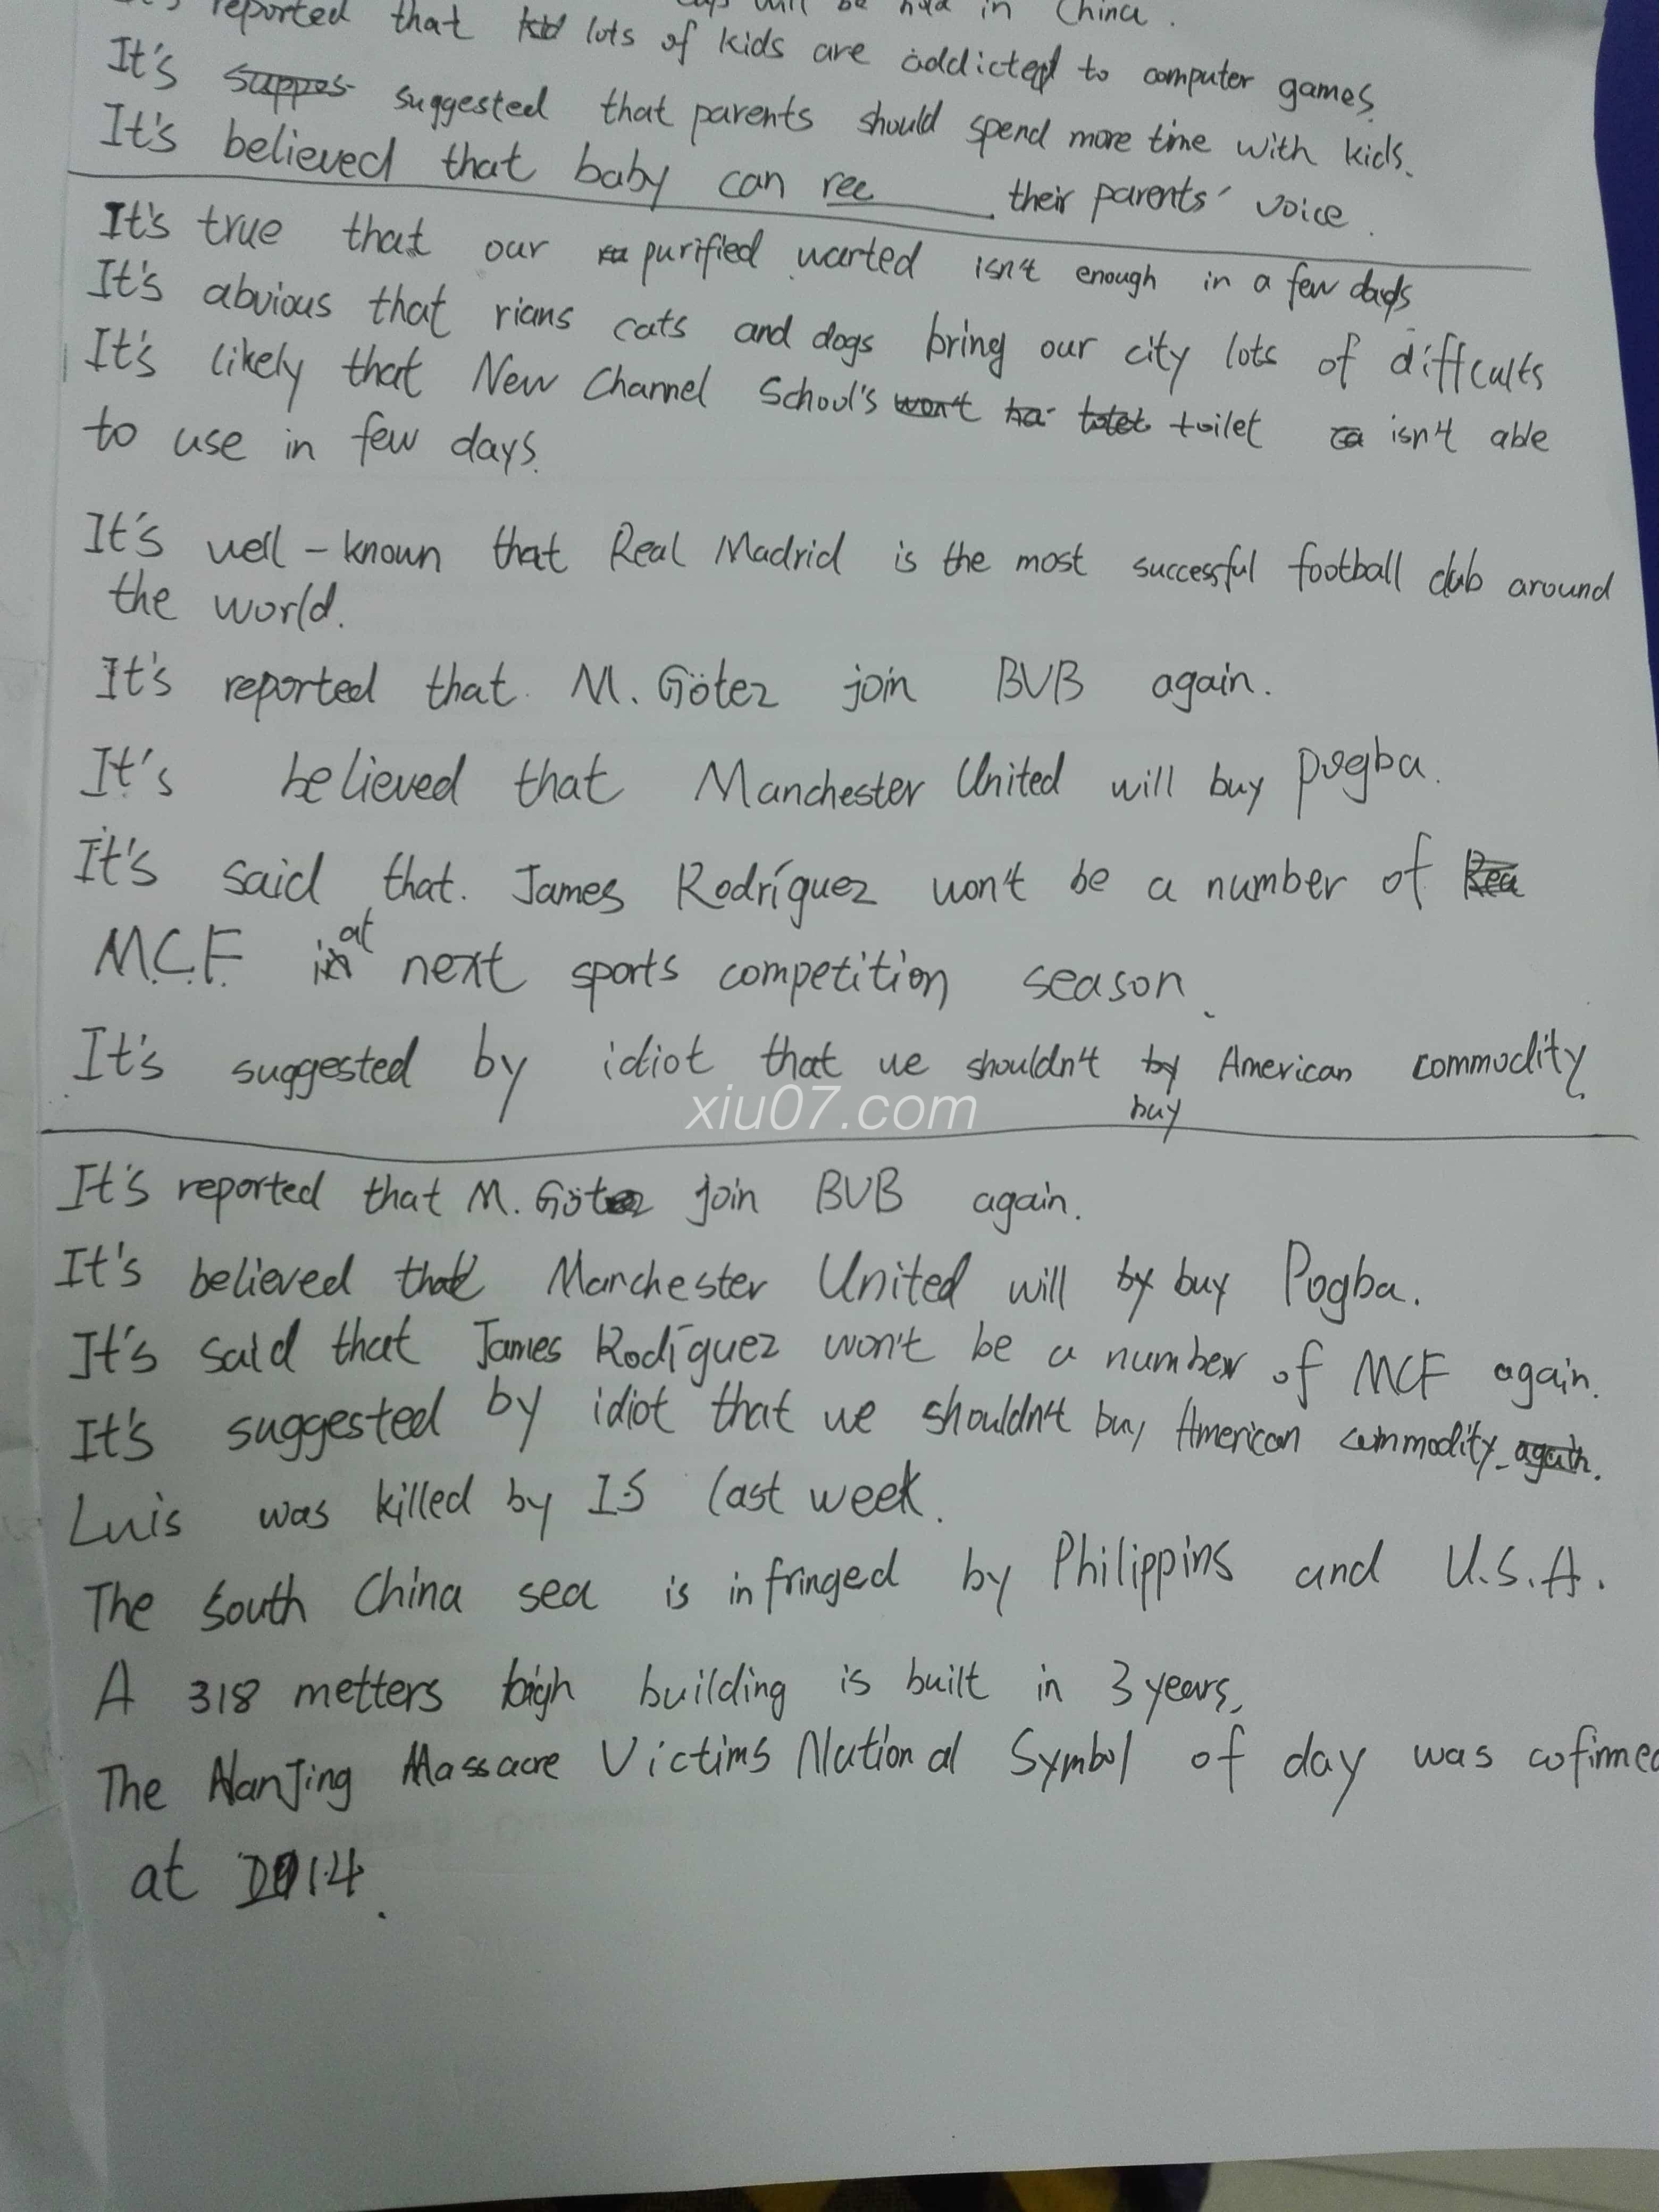 will be held in China.
reported that lots of kids are addicted to computer games.
It's suggested that parents should spend more time with kids.
It's believed that baby can rec____ their parents' voice.
It's true that our purified warted isn't enough in a few days
It's abvious that rians cats and dogs bring our city lots of diffcults
It's likely that New Channel School's toilet isn't able
to use in few days.
It's well-known that Real Madrid is the most successful football club around
the world.
It's reported that M. Götez join BVB again.
It's believed that Manchester United will buy Pogba.
It's said that. James Rodríguez won't be a number of
M.C.F. at next sports competition season.
It's suggested by idiot that we shouldn't buy American commodity.
xiu07.com
It's reported that M. Götez join BVB again.
It's believed that Manchester United will buy Pogba.
It's said that James Rodíguez won't be a number of MCF again.
It's suggested by idiot that we shouldn't buy American commodity.
Luis was killed by IS last week.
The South China sea is infringed by Philippins and U.S.A.
A 318 metters high building is built in 3 years.
The NanJing Massacre Victims National Symbol of day was cofirmed
at 2014.